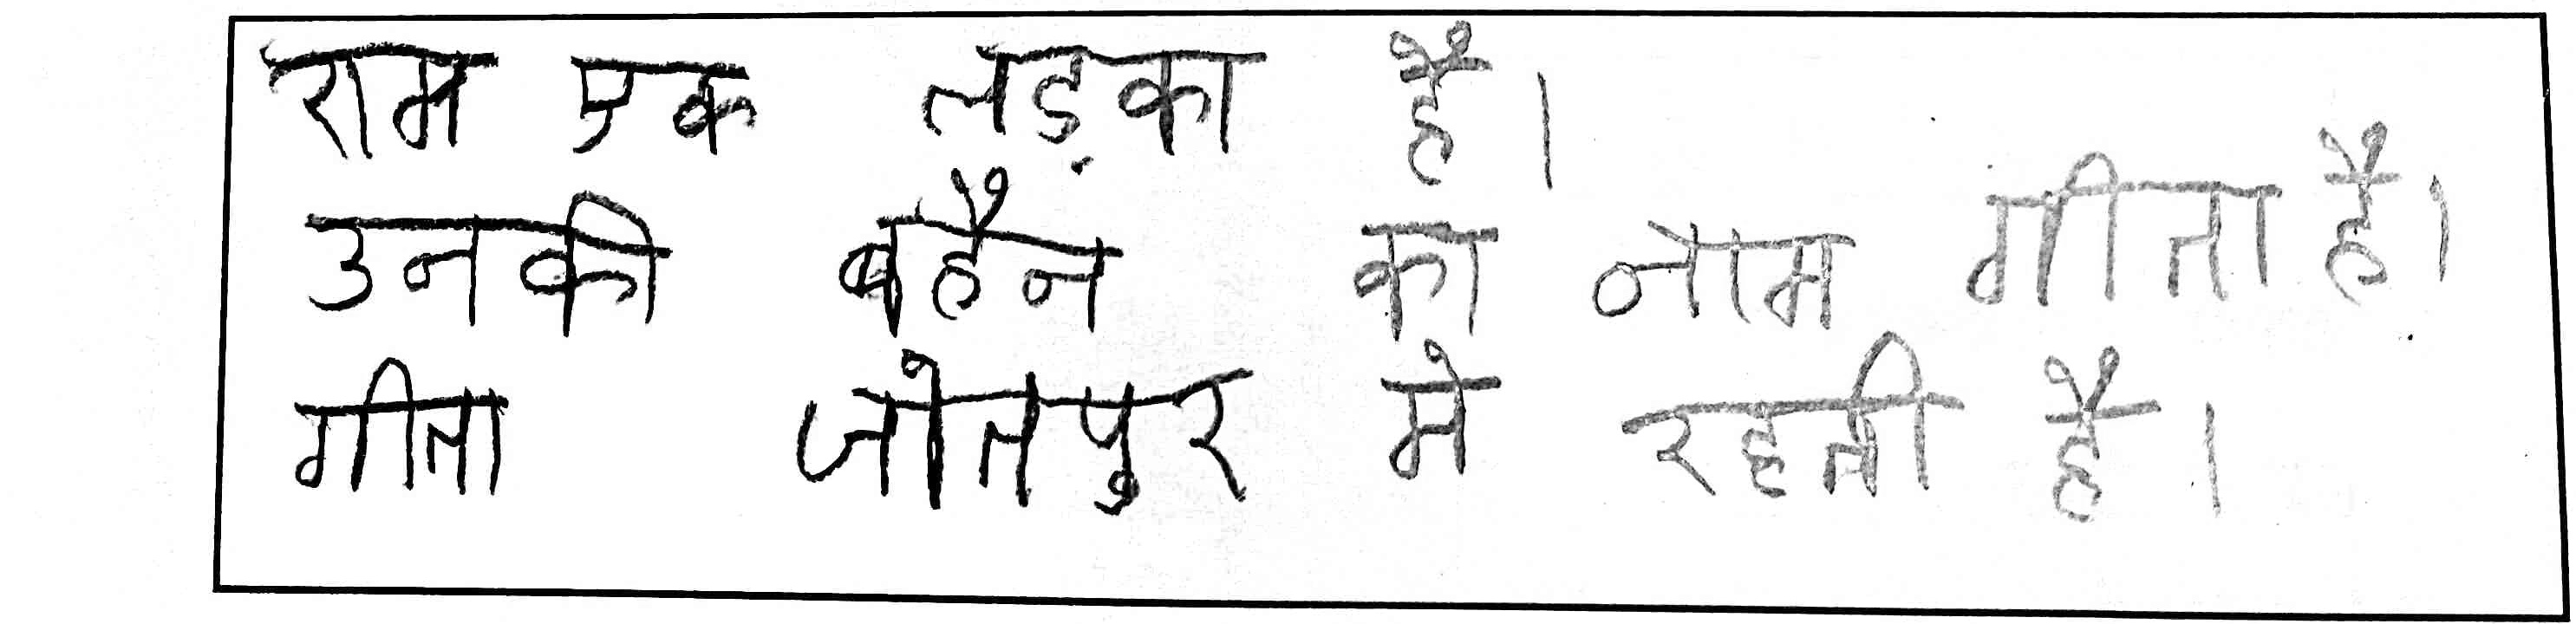 राम एक लड़का है।
उनकी बहैन का नाम गीता है।
गीता जोतपुर मे रहती है।